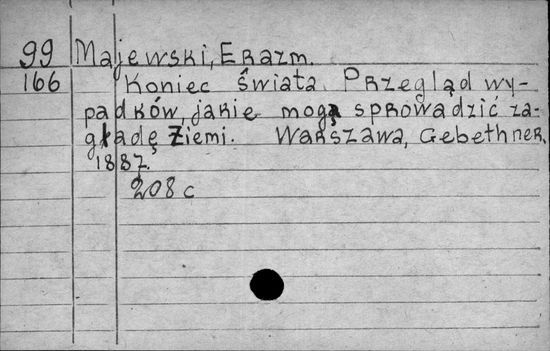 99 Majewski, Erazm.
166 Koniec świata. Przegląd wy-
padków, jakie mogą sprowadzić za-
gładę Ziemi. Warszawa, Gebethner.
1887.
208 c